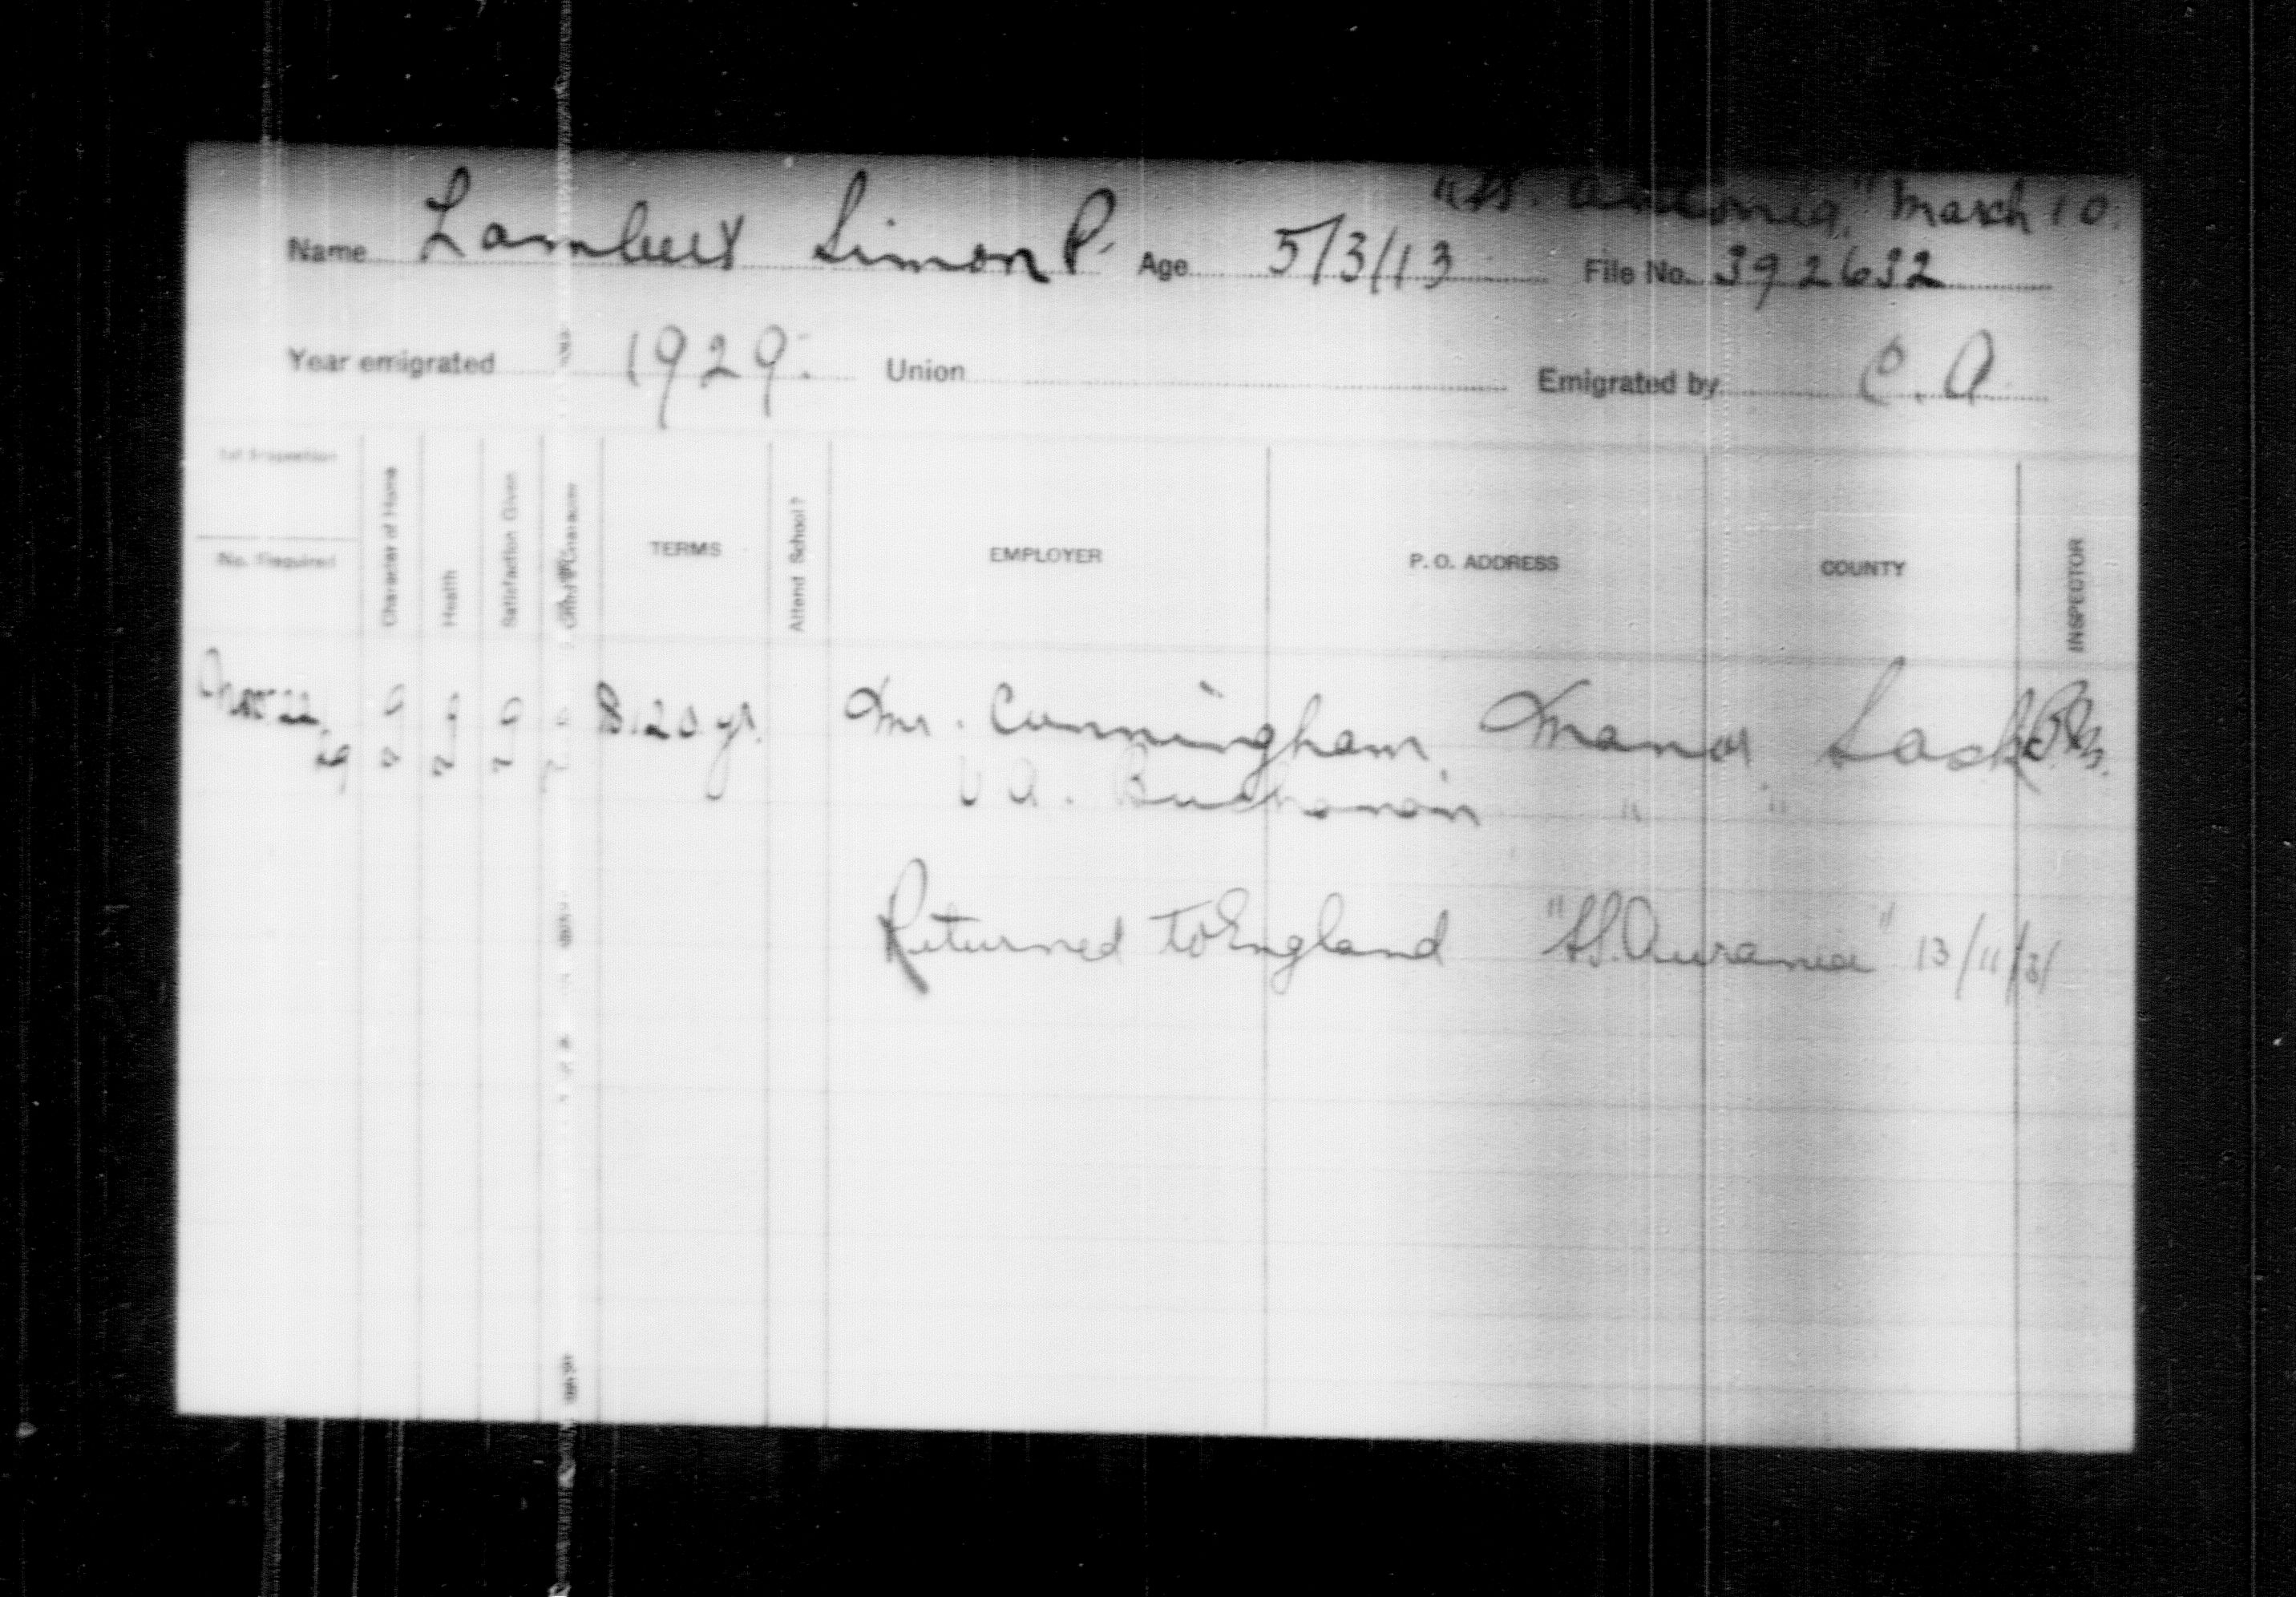 "SS. Antonia," March 10.
Name Lambert Simon P. Age 5/3/13 File No. 392632
Year emigrated 1929. Union Emigrated by C. A
1st Inspection
No. Required
Character of Home
Health
Satisfaction Given
Child's Character
TERMS
Attend School?
EMPLOYER
P. O. ADDRESS
COUNTY
INSPECTOR
22 G g G $120 yr. Mr. Cunningham, Manor Sask
29
A. Buchanan " "
Returned to England "SS. Aurania" 13/11/31